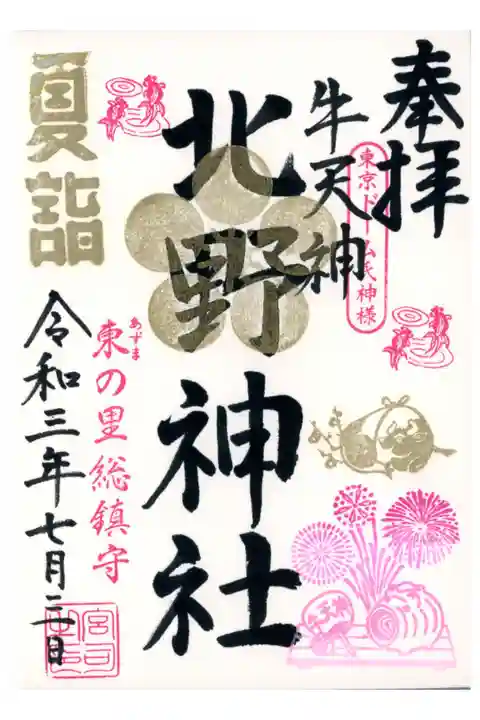 奉拝
東京ドーム氏神様
牛天神
北野神社
夏詣
東の里総鎮守
あずま
令和三年七月三日
牛天神
宮司之印